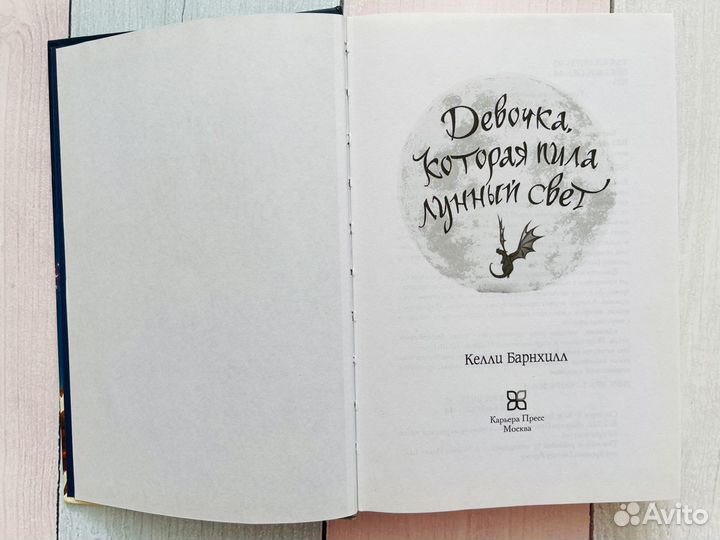 Девочка,
которая пила
лунный свет
Келли Барнхилл
Карьера Пресс
Москва
Avito